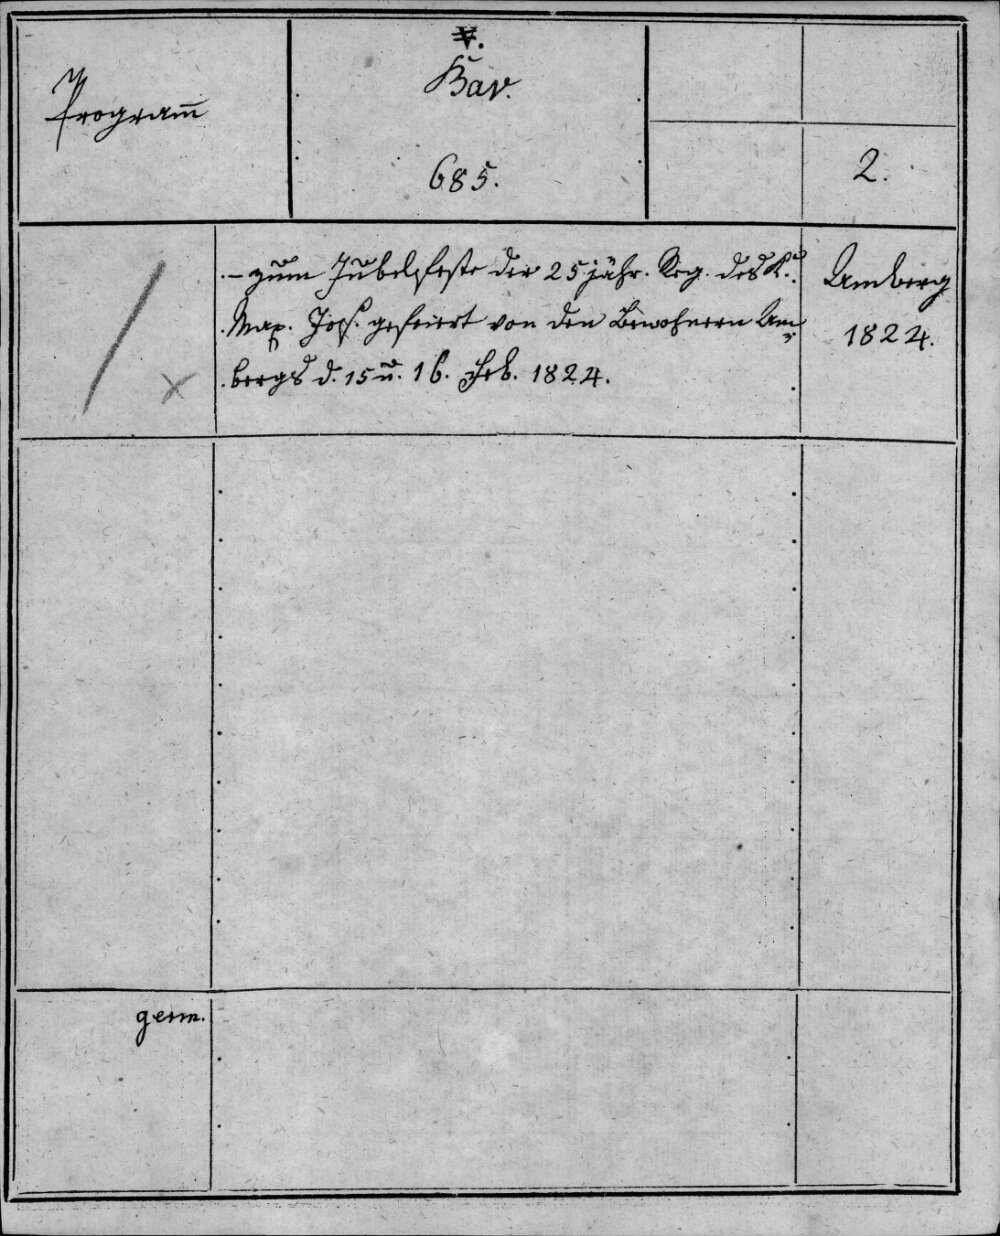 Program̄
V.
Bav.
685.
2.
– zum Jubelfeste der 25jähr. Reg. des K.
Max. Jos. gefeiert von den Bewohnern Am-
bergs d. 15 u. 16. Feb. 1824.
Amberg
1824.
germ.